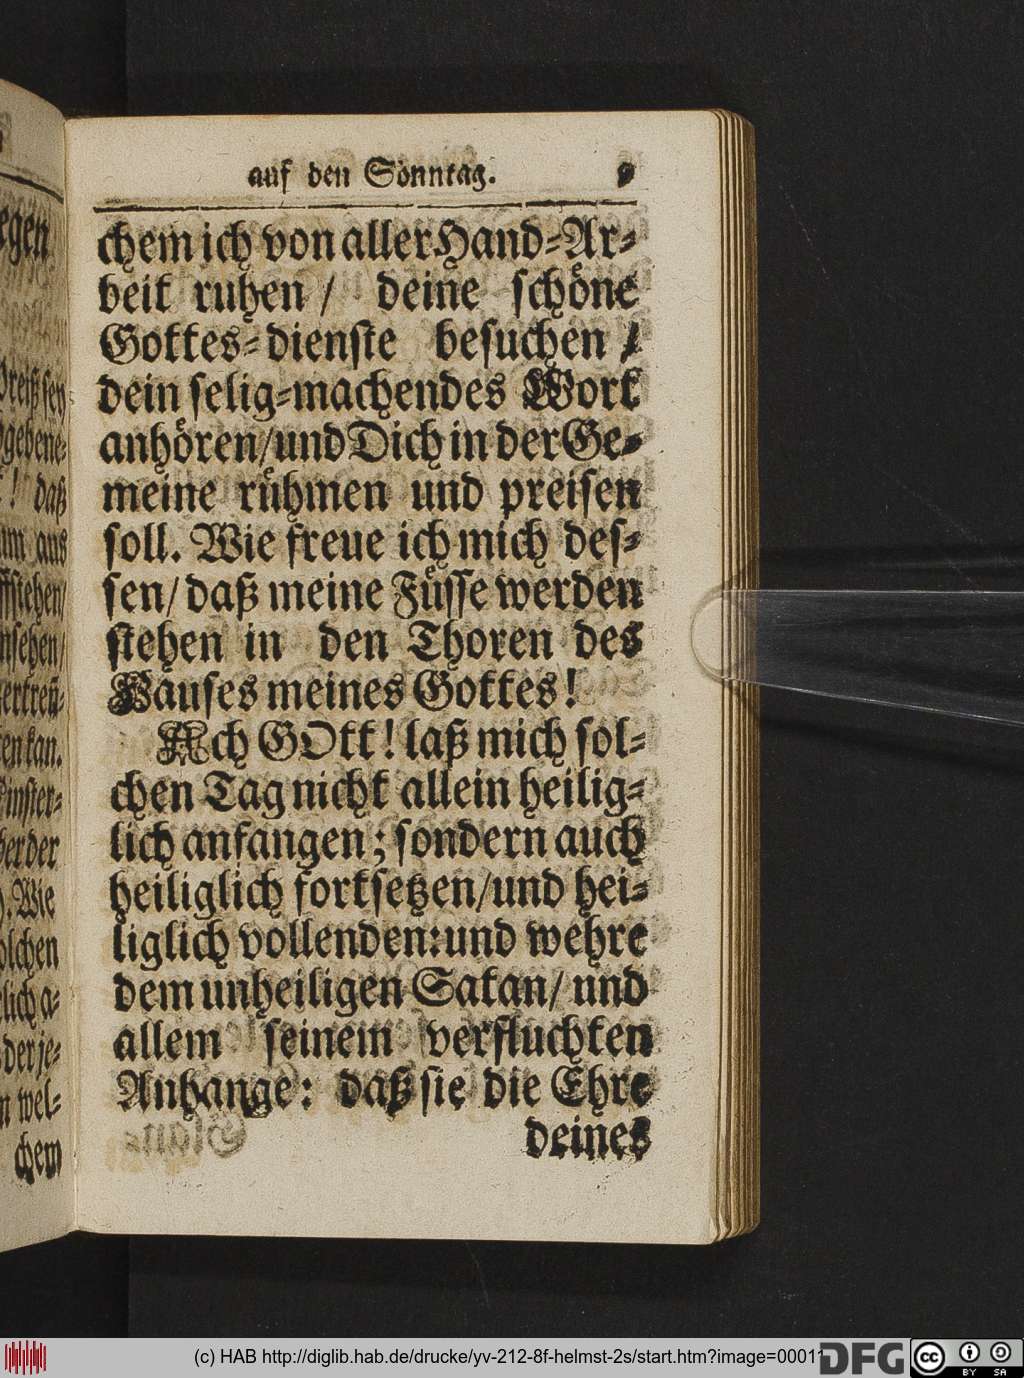 egen
Preiß sey
gebene-
! daß
um aus
ffstehen/
nsehen/
en kan.
Finster-
her der
). Wie
olchen
lich a-
der je-
n wel-
chem
auf den Sonntag. 9
chem ich von aller Hand-Ar-
beit ruhen / deine schöne
Gottes-dienste besuchen /
dein selig-machendes Wort
anhören/und Dich in der Ge-
meine rühmen und preisen
soll. Wie freue ich mich des-
sen/daß meine Füsse werden
stehen in den Thoren des
Hauses meines Gottes!
Ach GOtt! laß mich sol-
chen Tag nicht allein heilig-
lich anfangen; sondern auch
heiliglich fortsetzen/und hei-
liglich vollenden: und wehre
dem unheiligen Satan/ und
allem seinem verfluchten
Anhange: daß sie die Ehre
deines
(c) HAB http://diglib.hab.de/drucke/yv-212-8f-helmst-2s/start.htm?image=00011
DFG
cc BY SA